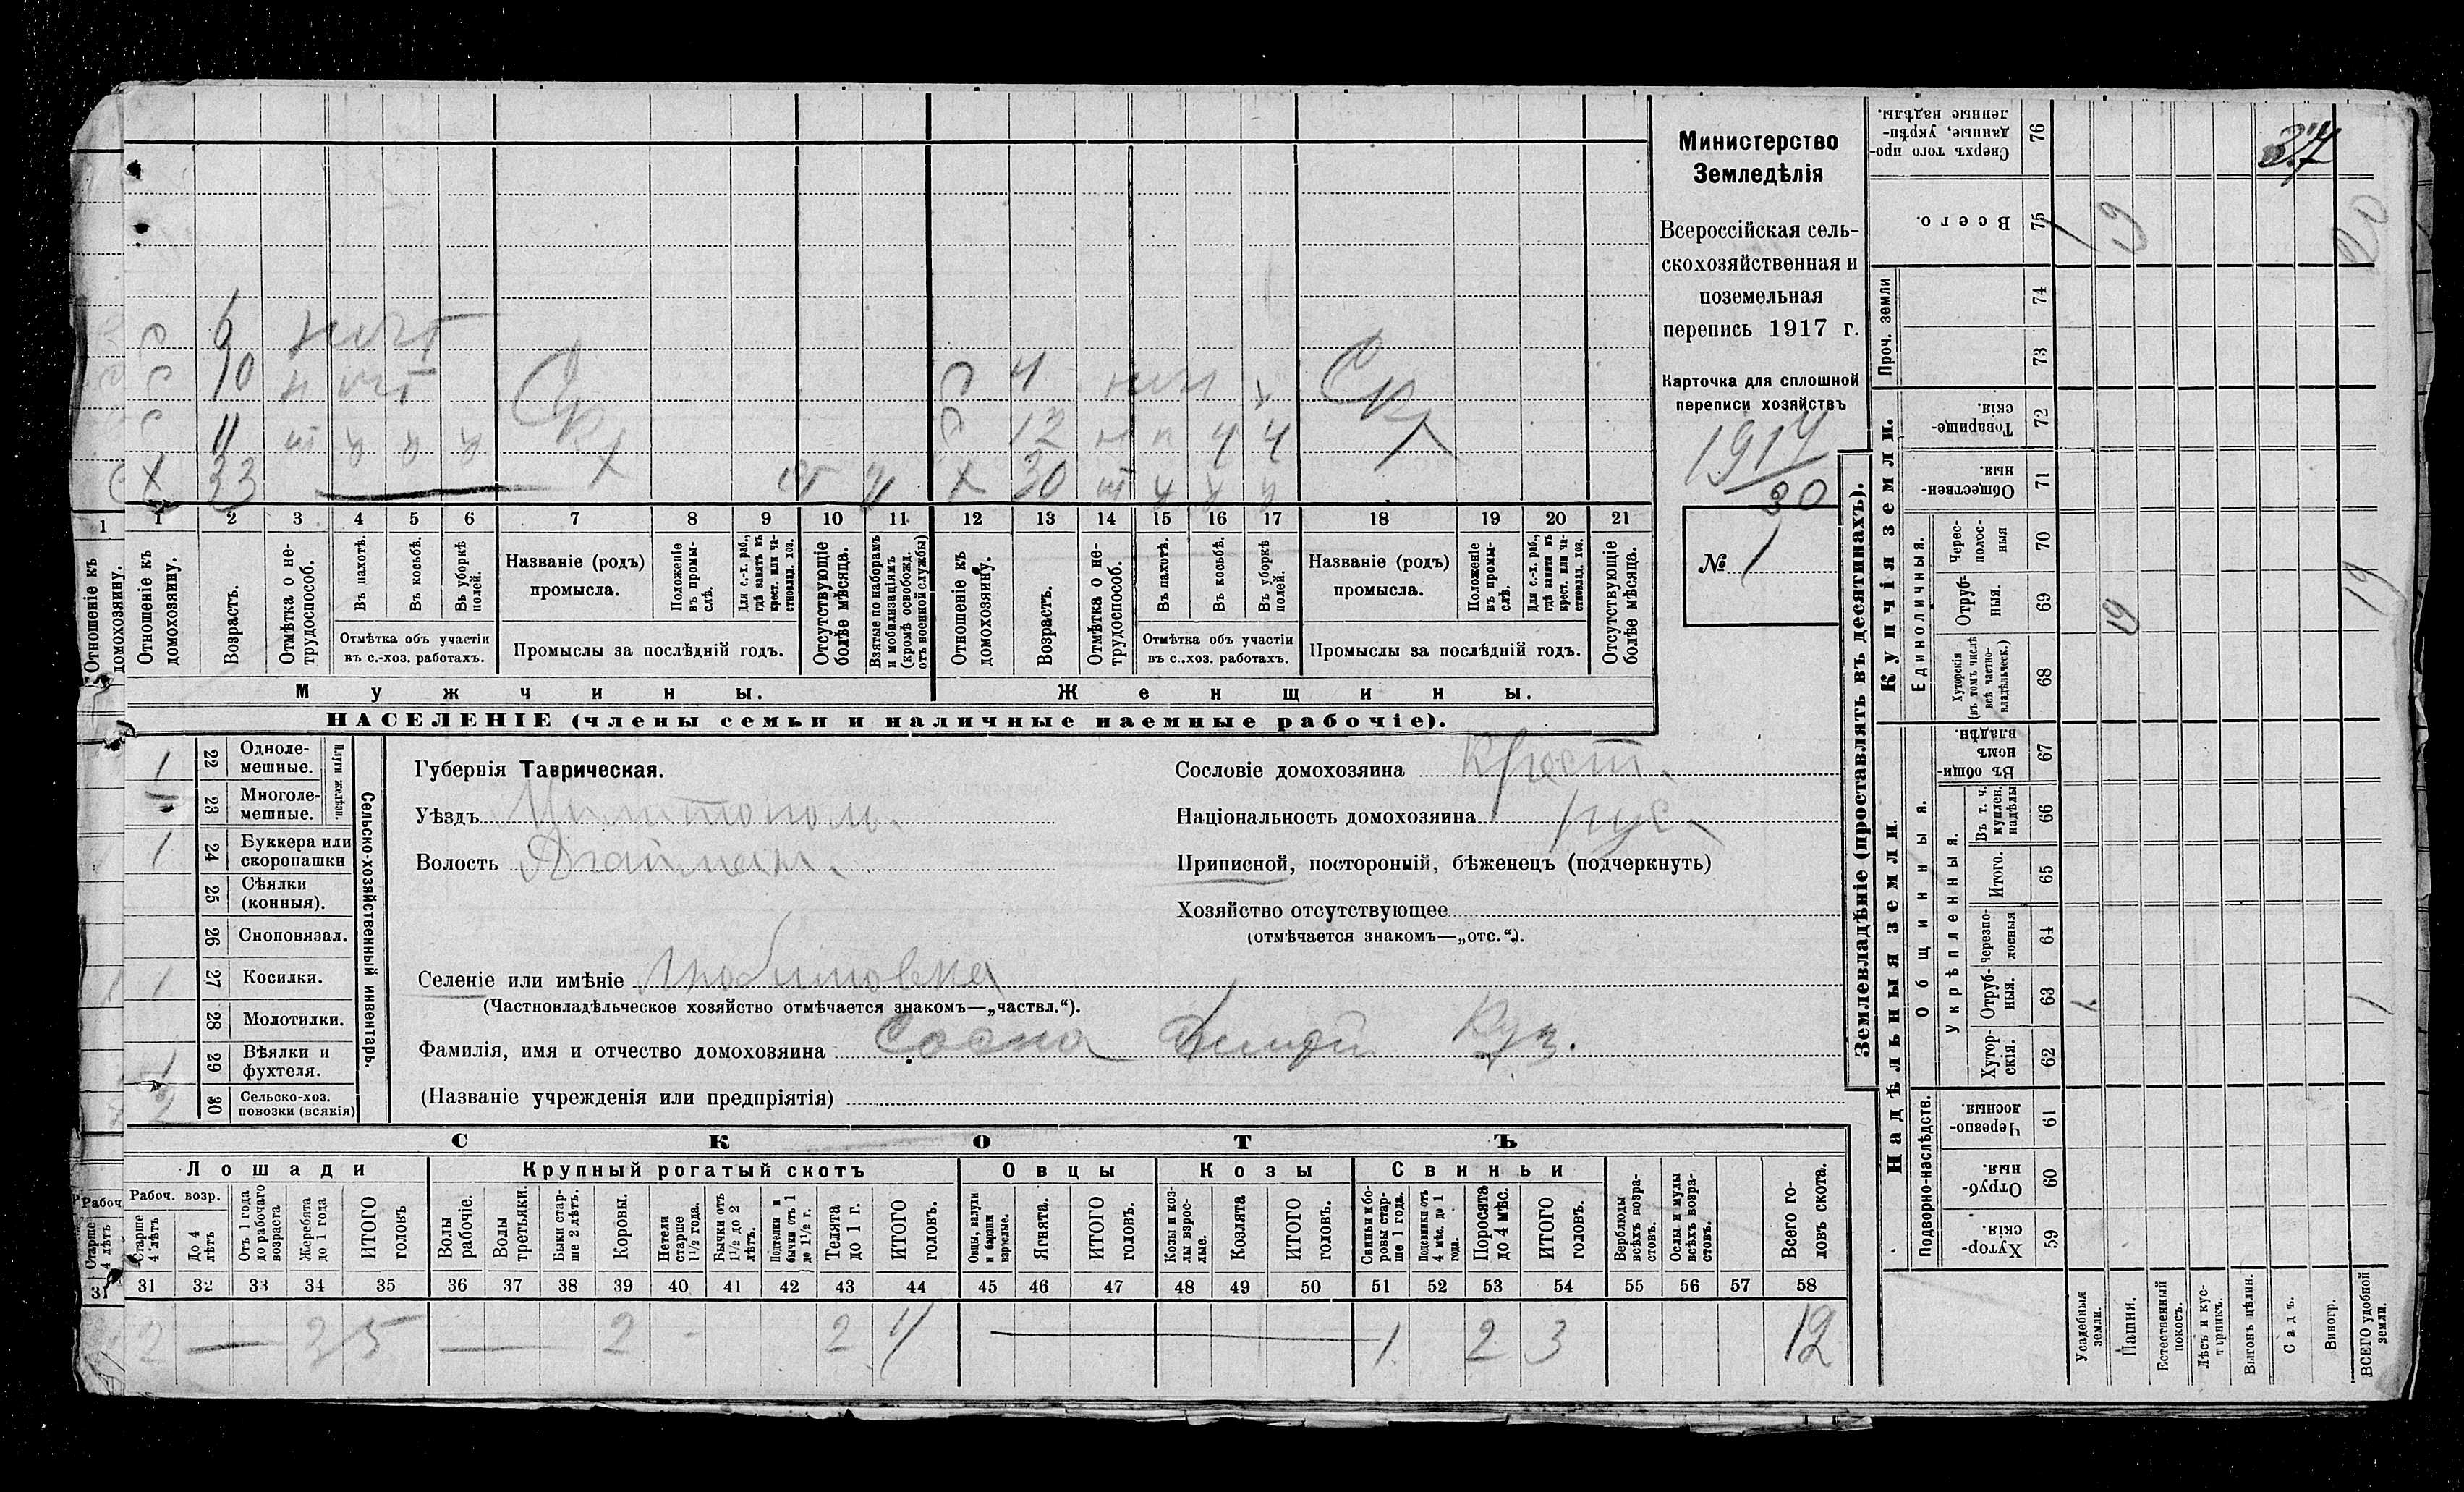 Министерство
Земледѣлія
Всероссійская сель-
скохозяйственная и
поземельная
перепись 1917 г.
Карточка для сплошной
переписи хозяйствъ
№ 1
6
10
11
Х 33
4
12 4 4
Х 30
1 2 3 4 5 6 7 8 9 10 11 12 13 14 15 16 17 18 19 20 21
Отношеніе къ домохозяину.
Возрастъ.
Отмѣтка о не-трудоспособ.
Въ пахотѣ.
Въ косьбѣ.
Въ уборкѣ полей.
Отмѣтка объ участіи
въ с.-хоз. работахъ.
Названіе (родъ)
промысла.
Положеніе въ промы-слѣ.
Для с.-х. раб., гдѣ занятъ въ крест. или ча-стновлад. хоз.
Промыслы за послѣдній годъ.
Отсутствующіе болѣе мѣсяца.
Взятые по наборамъ и мобилизаціямъ (кромѣ освобожд. отъ военной службы)
Отношеніе къ домохозяину.
Возрастъ.
Отмѣтка о не-трудоспособ.
Въ пахотѣ.
Въ косьбѣ.
Въ уборкѣ полей.
Отмѣтка объ участіи
въ с..хоз. работахъ.
Названіе (родъ)
промысла.
Положеніе въ промы-слѣ.
Для с.-х. раб., гдѣ занята въ крест. или ча-стновлад. хоз.
Промыслы за послѣдній годъ.
Отсутствующіе болѣе мѣсяца.
Мужчины.
Женщины.
НАСЕЛЕНІЕ (члены семьи и наличные наемные рабочіе).
Сельско-хозяйственный инвентарь.
Плуги желѣзн.
22 Одноле-мешные. 1
23 Многоле-мешные.
24 Буккера или скоропашки 1
25 Сѣялки (конныя).
26 Сноповязал.
27 Косилки. 1
28 Молотилки.
29 Вѣялки и фухтеля. 1
30 Сельско-хоз. повозки (всякія) 2
Губернія Таврическая.
Уѣздъ Мелитополь.
Волость Агайман.
Сословіе домохозяина Крест.
Національность домохозяина рус.
Приписной, посторонній, бѣженецъ (подчеркнуть)
Хозяйство отсутствующее
(отмѣчается знакомъ—„отс.“).
Селеніе или имѣніе Любимовка
(Частновладѣльческое хозяйство отмѣчается знакомъ—„частвл.“).
Фамилія, имя и отчество домохозяина Сосна Куз.
(Названіе учрежденія или предпріятія)
СКОТЪ
Лошади
Крупный рогатый скотъ
Овцы
Козы
Свиньи
Рабоч. возр.
Старше 4 лѣтъ
До 4 лѣтъ
Отъ 1 года до рабочаго возраста
Жеребята до 1 года
ИТОГО головъ
Волы рабочіе.
Волы третьяки.
Быки стар-ше 2 лѣтъ.
Коровы.
Нетели старше 1½ года.
Бычки отъ 1½ до 2 лѣтъ.
Подтелки и бычки отъ 1 до 1½ г.
Телята до 1 г.
ИТОГО головъ.
Овцы, валухи и бараны взрослые.
Ягнята.
ИТОГО головъ.
Козы и коз-лы взрос-лые.
Козлята
ИТОГО головъ.
Свиньи и бо-ровы стар-ше 1 года.
Подсвинки отъ 4 мѣс. до 1 года.
Поросята до 4 мѣс.
ИТОГО головъ.
Верблюды всѣхъ возра-стовъ.
Ослы и мулы всѣхъ возра-стовъ.
Всего го-ловъ скота.
31 32 33 34 35 36 37 38 39 40 41 42 43 44 45 46 47 48 49 50 51 52 53 54 55 56 57 58
2 — 3 5 — 2 - 2 4 — 1 2 3 12
Землевладѣніе (проставлять въ десятинахъ).
Купчія земли.
Надѣльныя земли.
Сверхъ того про-данные, укрѣп-ленные надѣлы. 76
Всего. 75
Проч. земли 74 73
Товарище-скія. 72
Обществен-ныя. 71
Единоличныя.
Черес-полос-ныя 70
Отруб-ныя. 69
Хуторскія (въ томъ числѣ всѣ частно-владѣльческ.) 68
Общинныя.
Въ общи-номъ владѣн. 67
Укрѣпленныя.
Въ т. ч. куплен. надѣлы 66
Итого. 65
черезпо-лосныя 64
Отруб-ныя. 63
Хутор-скія. 62
Подворно-наслѣдств.
Черезпо-лосныя. 61
Отруб-ныя. 60
Хутор-скія. 59
Усадебныя земли.
Пашня.
Естественный покосъ.
Лѣсъ и кус-тарникъ.
Выгонъ цѣлин.
Садъ.
Виногр.
ВСЕГО удобной земли.
1 19 20
19 19
1 1
Отношеніе къ домохозяину.
1
Рабоч
Старше 4 лѣтъ
31